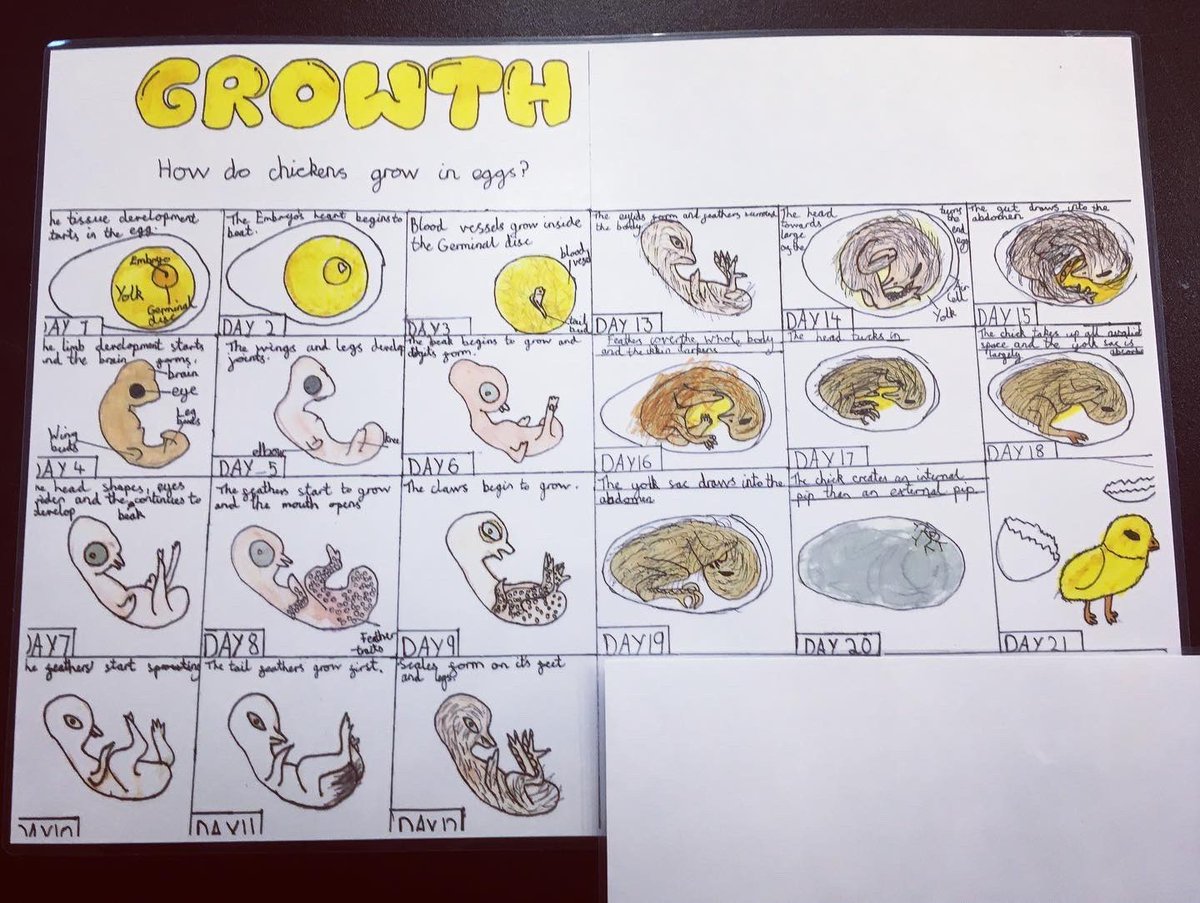 GROWTH
How do chickens grow in eggs?
he tissue development
tarts in the egg.
Embryo
Yolk
Germinal
disc
DAY 1
The Embryo's heart begins to
beat.
DAY 2
Blood vessels grow inside
the Germinal disc
blood
vessel
tail
bud
DAY 3
he limb development starts
nd the brain forms.
brain
eye
Leg
buds
Wing
buds
DAY 4
The wings and legs develop
joints.
elbow
knee
DAY 5
The beak begins to grow and
digits form.
DAY 6
he head shapes, eyes
widen and the continues to
beak
develop
DAY 7
The feathers start to grow
and the mouth opens
Feather
tracts
DAY 8
The claws begin to grow.
DAY 9
he feathers start sprouting
DAY 10
The tail feathers grow first.
DAY 11
Scales form on it's feet
and legs.
DAY 12
The eylids form and feathers surround
the body.
DAY 13
The head
turns
towards
the
large
end
egg
Air
Cell
Yolk
DAY 14
The gut draws into the
abdomen
DAY 15
Feathers cover the whole body
and the skin darkens
DAY 16
The head tucks in
DAY 17
The chick takes up all available
space and the yolk sac is
largely absorbed
DAY 18
The yolk sac draws into the
abdomen
DAY 19
The chick creates an internal
pip then an external pip.
DAY 20
DAY 21